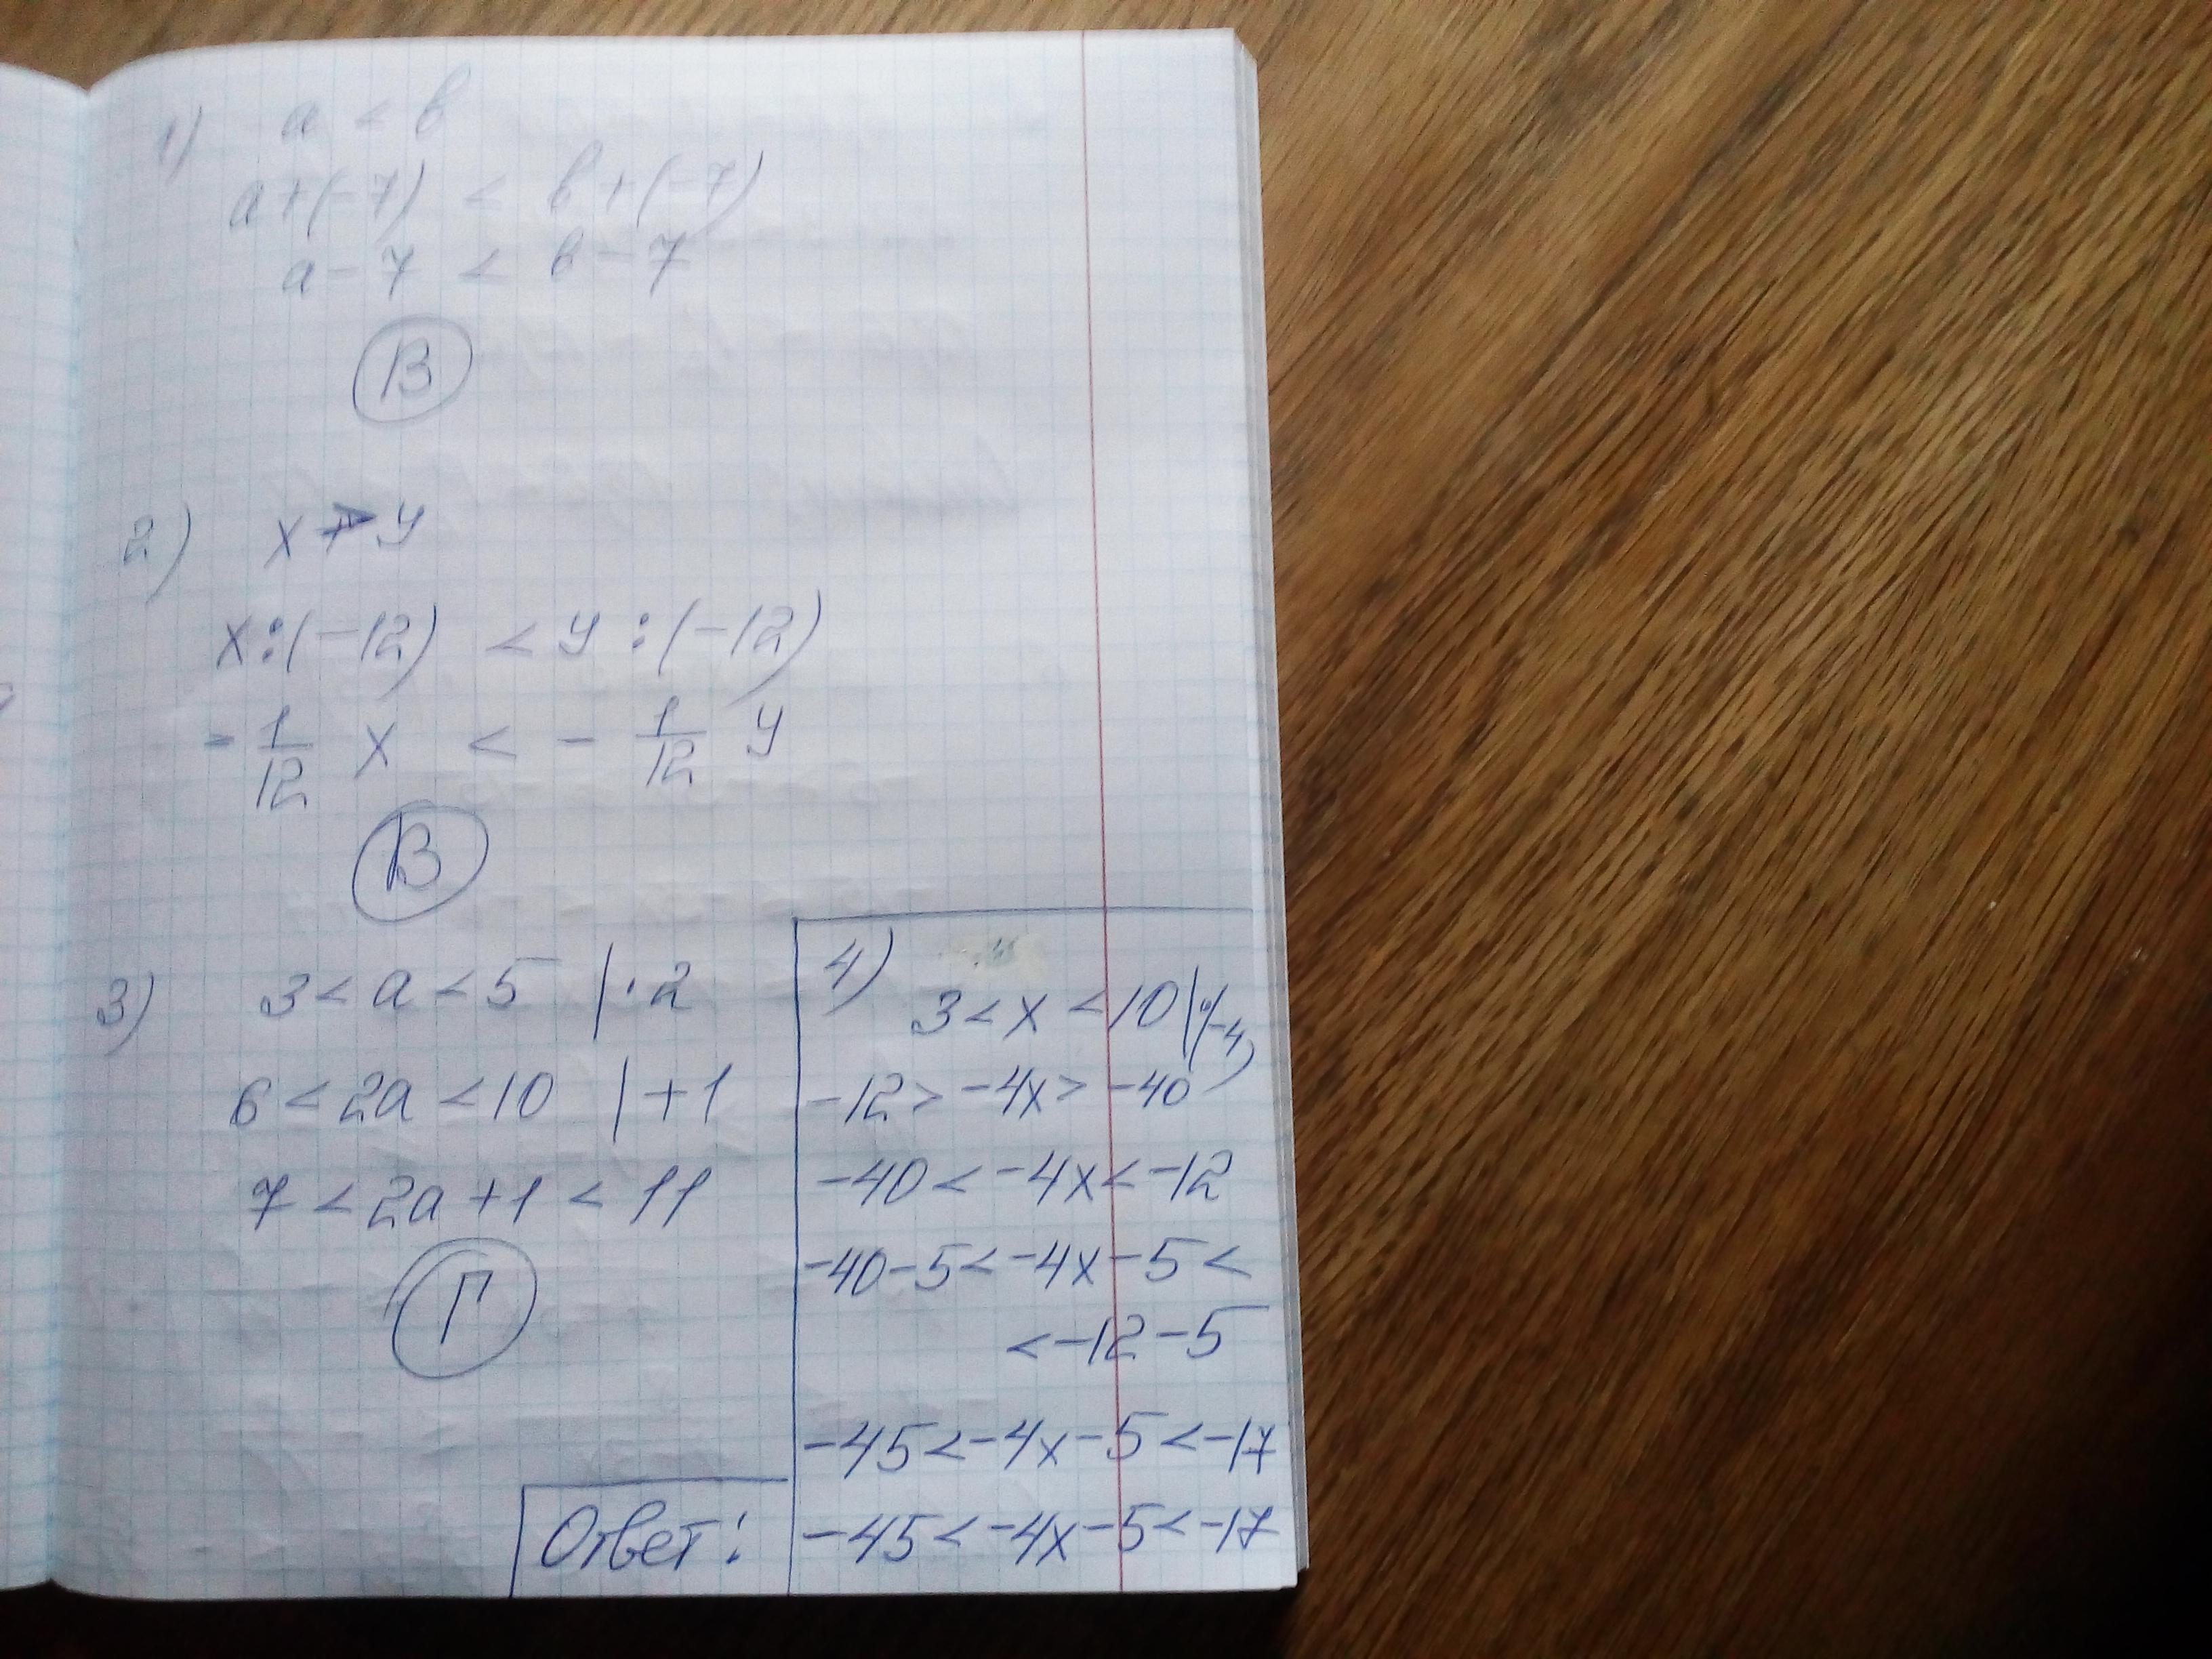 1) a < b
a+(-7) < b+(-7)
a-7 < b-7
В
2) x > y
x:(-12) < y:(-12)
-1/12 x < -1/12 y
В
3) 3 < a < 5 |·2
6 < 2a < 10 |+1
7 < 2a+1 < 11
Г
4) 3 < x < 10 |·(-4)
-12 > -4x > -40
-40 < -4x < -12
-40-5 < -4x-5 <
< -12-5
-45 < -4x-5 < -17
Ответ: -45 < -4x-5 < -17